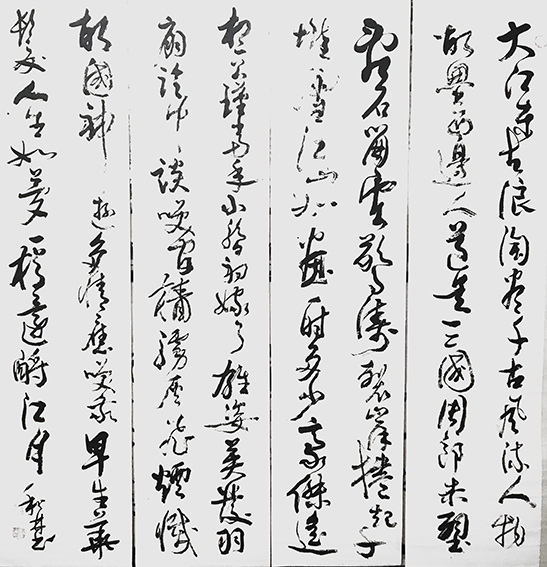 大江東去浪淘盡千古風流人物
故壘西邊人道是三國周郎赤壁
亂石崩雲驚濤裂岸捲起千
堆雪江山如畫一時多少豪傑遙
想公瑾當年小喬初嫁了雄姿英發羽
扇綸巾談笑間檣櫓灰飛煙滅
故國神遊多情應笑我早生華
髮人生如夢一樽還酹江月